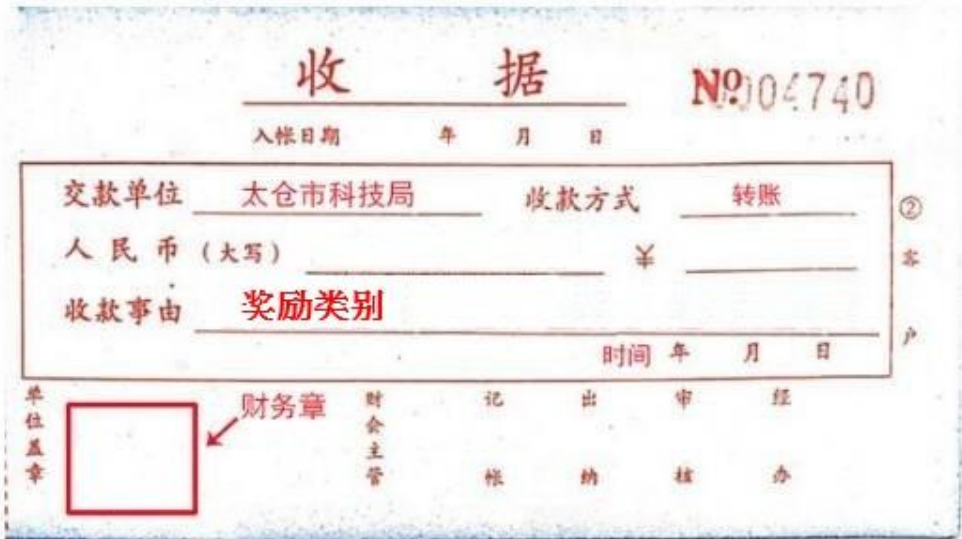 收 据
№004740
入帐日期 年 月 日
交款单位 太仓市科技局 收款方式 转账
人民币(大写) ¥
收款事由 奖励类别
时间 年 月 日
②客户
单位盖章
财务章
财会主管
记帐
出纳
审核
经办